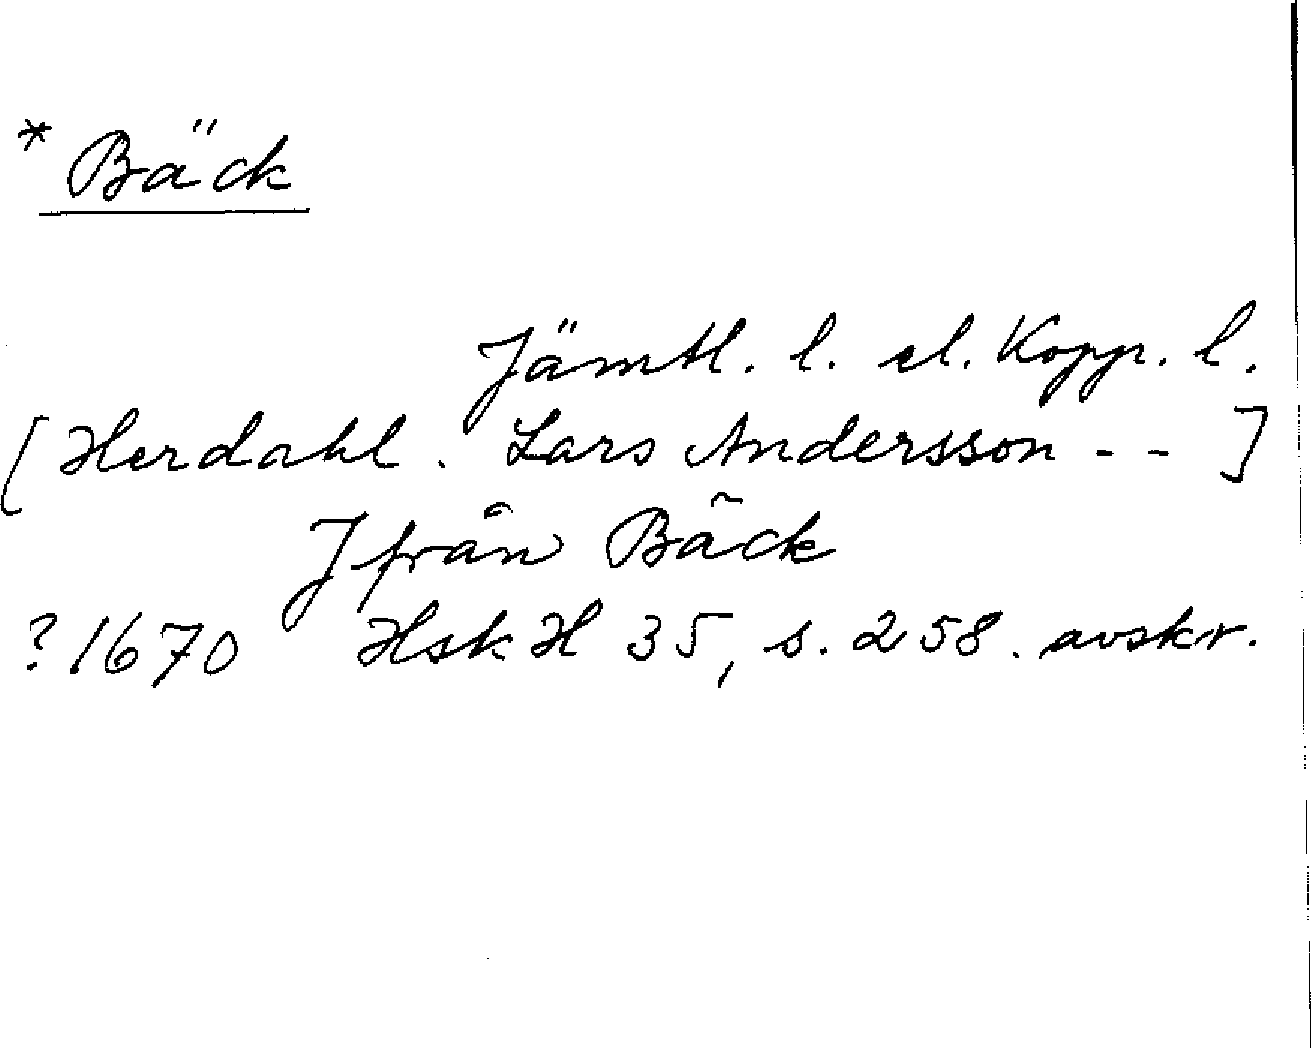 * Bäck
Jämtl. l. el. Kopp. l.
[Herdahl. Lars Andersson - - ]
J från Bäck
? 1670 Hsk H 35, s. 258. avskr.